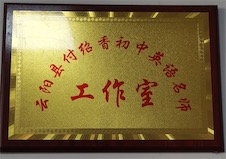 云阳县付绍香初中英语名师
工作室